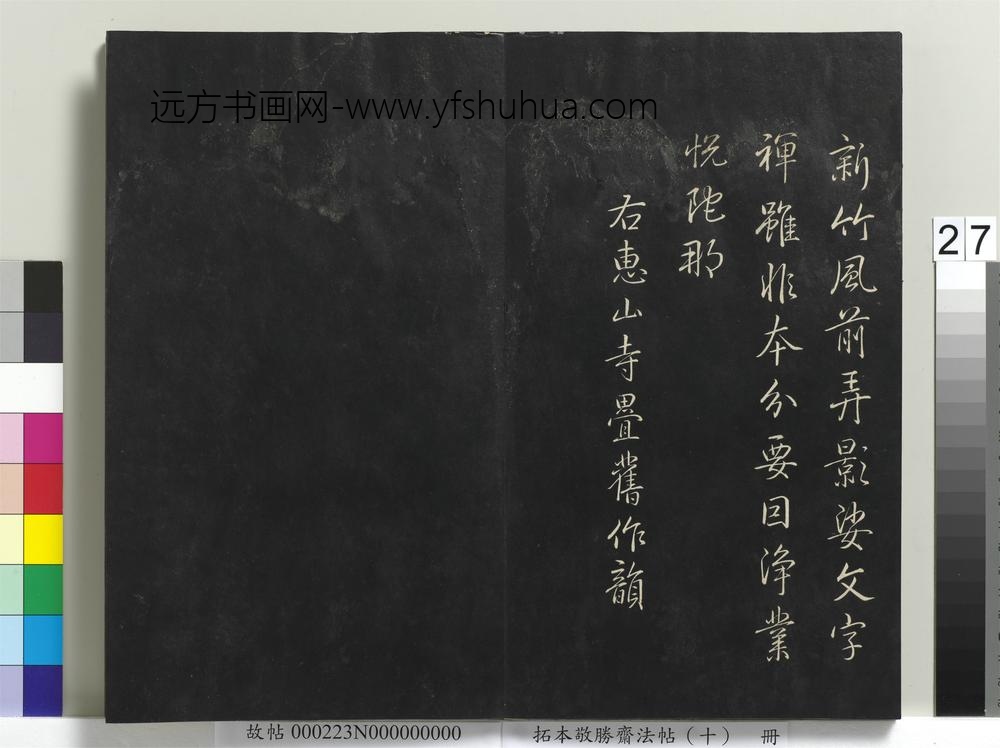 远方书画网-www.yfshuhua.com
新竹風前弄影娑文字
禪雖非本分要因淨業
悅陀那
右惠山寺疊舊作韻
27
故帖 000223N000000000
拓本敬勝齋法帖（十） 冊